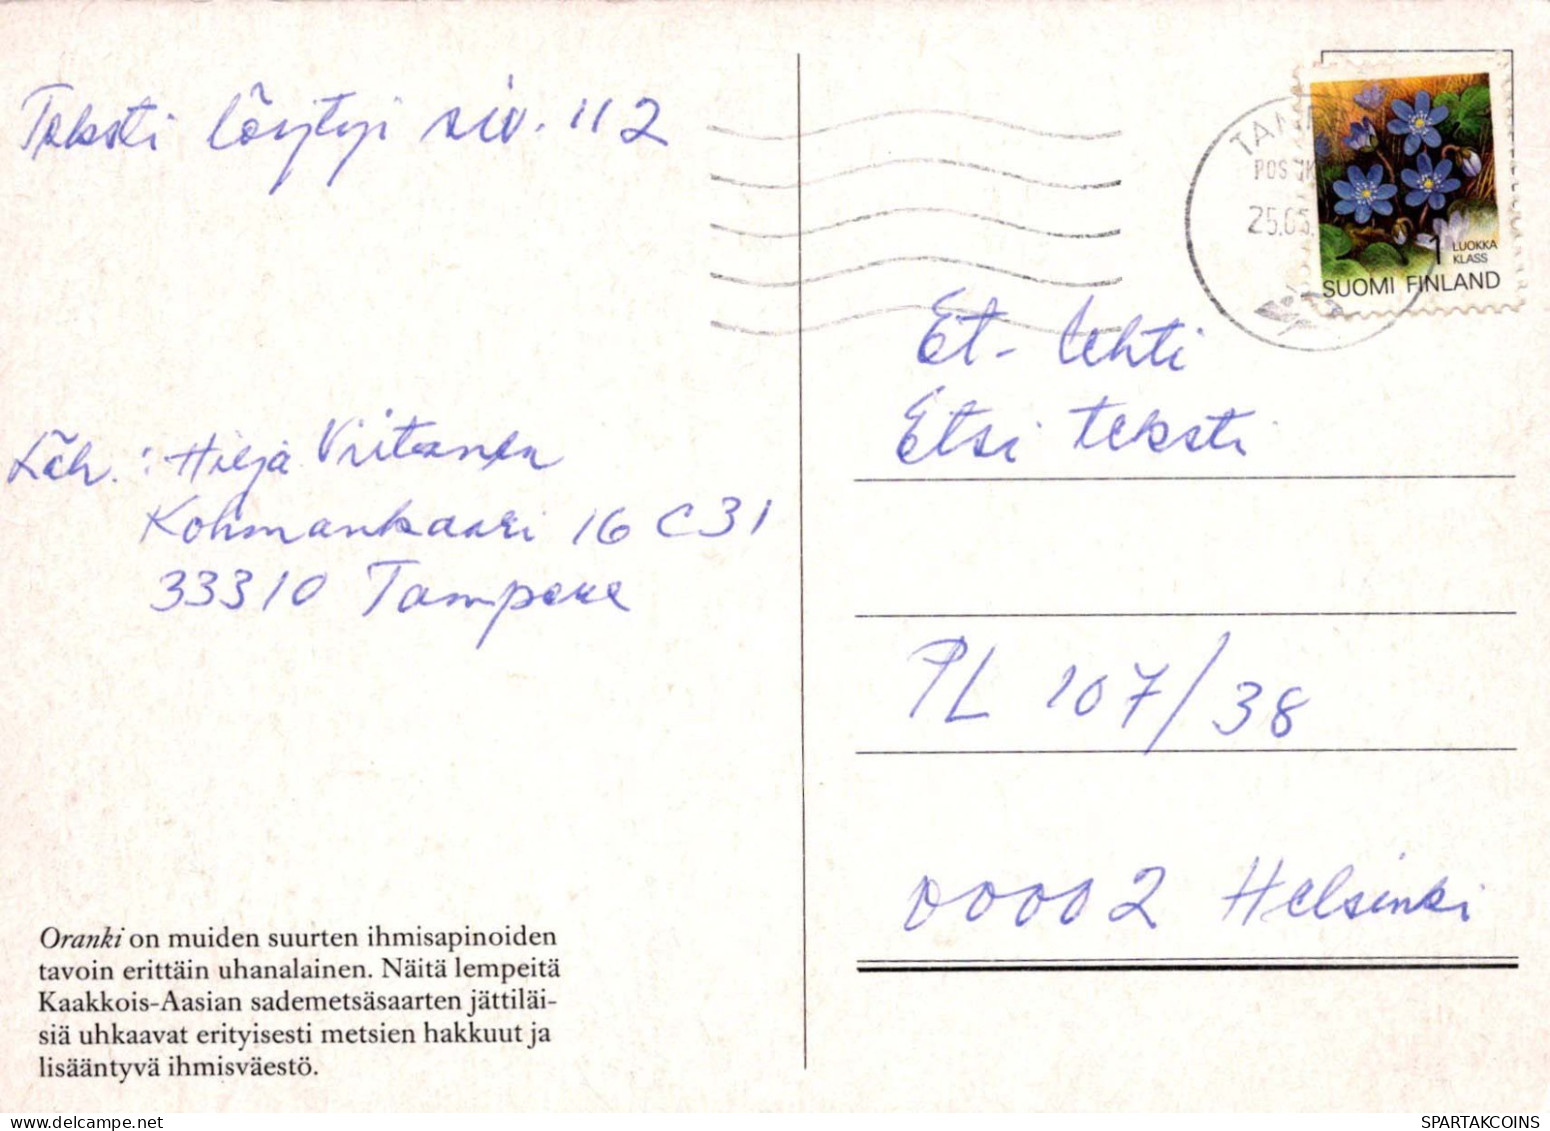 Teksti löytyi siv. 112
Läh. : Hilja Viitanen
Kohmankaari 16 C 31
33310 Tampere
Oranki on muiden suurten ihmisapinoiden
tavoin erittäin uhanalainen. Näitä lempeitä
Kaakkois-Aasian sademetsäsaarten jättiläi-
siä uhkaavat erityisesti metsien hakkuut ja
lisääntyvä ihmisväestö.
25.05.
1 LUOKKA
KLASS
SUOMI FINLAND
Et-lehti
Etsi teksti
PL 107/38
00002 Helsinki
delcampe.net
SPARTAKCOINS